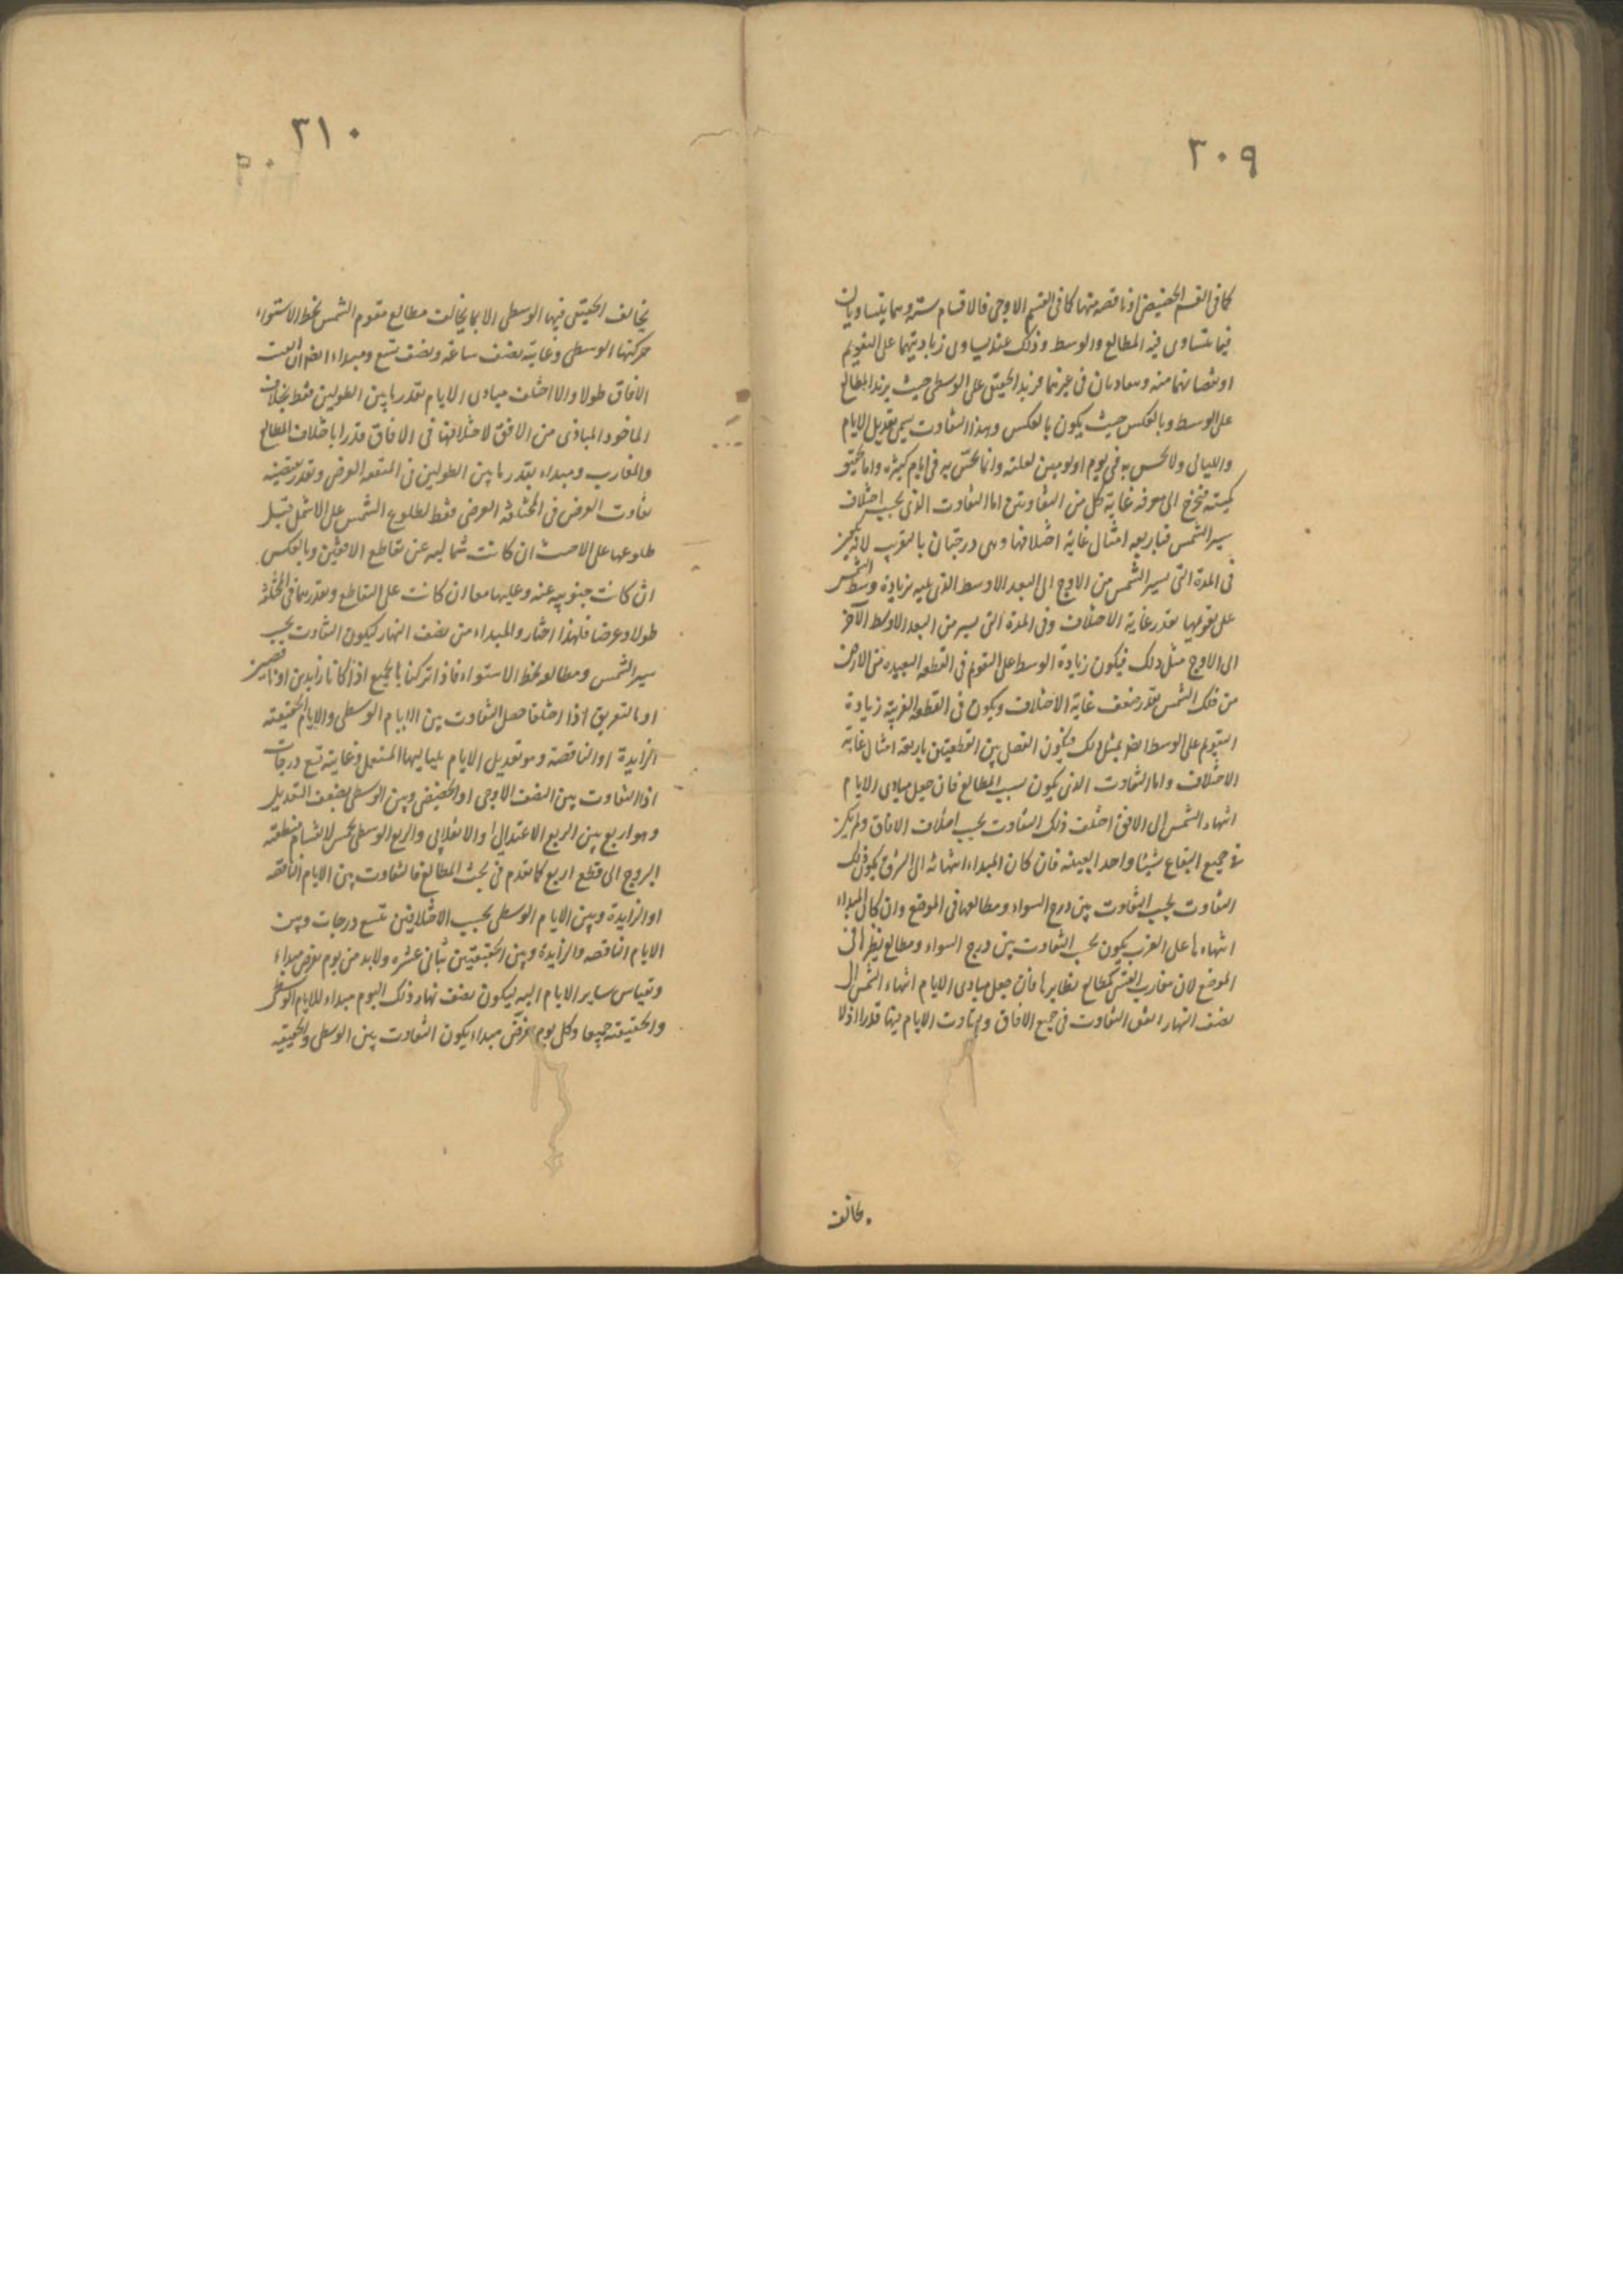 ٣٠٩
كما فى القسم الحضيضى او ناقصه منها كما فى القسم الاوجى فالاقسام ستة وهما يتساويان
فيما يتساوى فيه المطالع والوسط وذلك عند تساوى زيادتيهما على التقويم
او نقصانهما منه ومتفاوتان فى غيرهما فيزيد الحقيقى على الوسطى حيث يزيد المطالع
على الوسط وبالعكس حيث يكون بالعكس وهذا التفاوت يسمى تعديل الايام
والليالى ولا يحس به فى يوم او يومين لقلته وانما يحس به فى ايام كثيره واما تحقيق
كميته فيحوج الى معرفة غاية كل من التفاوتين اما التفاوت الذى بحسب اختلاف
سير الشمس فباربعه امثال غاية اختلافها وهى درجتان بالتقريب لانه يتميز
فى المدة التى يسير الشمس من الاوج الى البعد الاوسط الذى يليه بزيادة وسط الشمس
على تقويمها بقدر غاية الاختلاف وفى المدة التى يسير من البعد الاوسط الآخر
الى الاوج مثل ذلك فيكون زيادة الوسط على التقويم فى القطعه البعيده من الارض
من فلك الشمس بقدر ضعف غاية الاختلاف ويكون فى القطعه القريبة زيادة
التقويم على الوسط ايضا بمثل ذلك فيكون الفضل بين القطعتين باربعة امثال غاية
الاختلاف واما التفاوت الذى يكون بسبب المطالع فان جعل مبادى الايام
انتهاء الشمس الى الافق اختلف ذلك التفاوت بحسب اختلاف الافاق ولم يكن
فى جميع البقاع شيئا واحدا بعينه فان كان المبداء انتهائه الى الشرق يكون ذلك
التفاوت بحسب التفاوت بين درج السواء ومطالعها فى الموضع وان كان المبداء
انتهاءها على الغرب يكون بحسب التفاوت بين درج السواء ومطالع نظيرها فى
الموضع لان مغارب القسى كمطالع نظايرها فان جعل مبادى الايام انتهاء الشمس الى
نصف النهار اتفق التفاوت فى جميع الافاق ولم يتفاوت الايام فيها قدرا اذ لا
يخالف
٣١٠
يخالف الحقيقى فيها الوسطى الا بما يخالف مطالع مقوم الشمس بخط الاستواء
حركتها الوسطى وغايته نصف ساعة ونصف تسع ومبداء ايضا ان اتفقت
الافاق طولا والا اختلف مبادى الايام بقدر ما بين الطولين فقط بخلاف
الماخوذ المبادى من الافق لاختلافها فى الافاق قدرا باختلاف المطالع
والمغارب ومبداء بقدر ما بين الطولين فى المتفقه العرض وبقدر يقتضيه
تفاوت العرض فى المختلفه العرض فقط لطلوع الشمس على الاشمل قبل
طلوعها على الاجنب ان كانت شماليه عن تقاطع الافقين وبالعكس
ان كانت جنوبيه عنه وعليهما معا ان كانت على التقاطع وبقدرهما فى المختلفه
طولا وعرضا فلهذا اختار والمبداء من نصف النهار ليكون التفاوت بحسب
سير الشمس ومطالعه بخط الاستواء فاذا تركبا بالجمع اذا كانا زايدين او ناقصين
او بالتفريق اذا اختلفا حصل التفاوت بين الايام الوسطى والايام الحقيقيه
الزايدة او الناقصة وهو تعديل الايام بلياليها المستعمل وغايته تسع درجات
اذ التفاوت بين النصف الاوجى او الحضيضى وبين الوسطى بضعف التعديل
وهو اربع بين الربع الاعتدالى او الانقلابى والربع الوسطى بخمس لانقسام منطقة
البروج الى قطع اربع كما تقدم فى بحث المطالع فالتفاوت بين الايام الناقصه
او الزايدة وبين الايام الوسطى بحسب الاختلافين تسع درجات وبين
الايام الناقصه والزايدة وبين الحقيقيتين ثمانى عشره ولا بد من يوم يفرض مبداء
وتقياس ساير الايام اليه ليكون نصف نهار ذلك اليوم مبداء للايام الوسطى
والحقيقيته جميعا وكل يوم يفرض مبداء يكون التفاوت بين الوسطى والحقيقيه